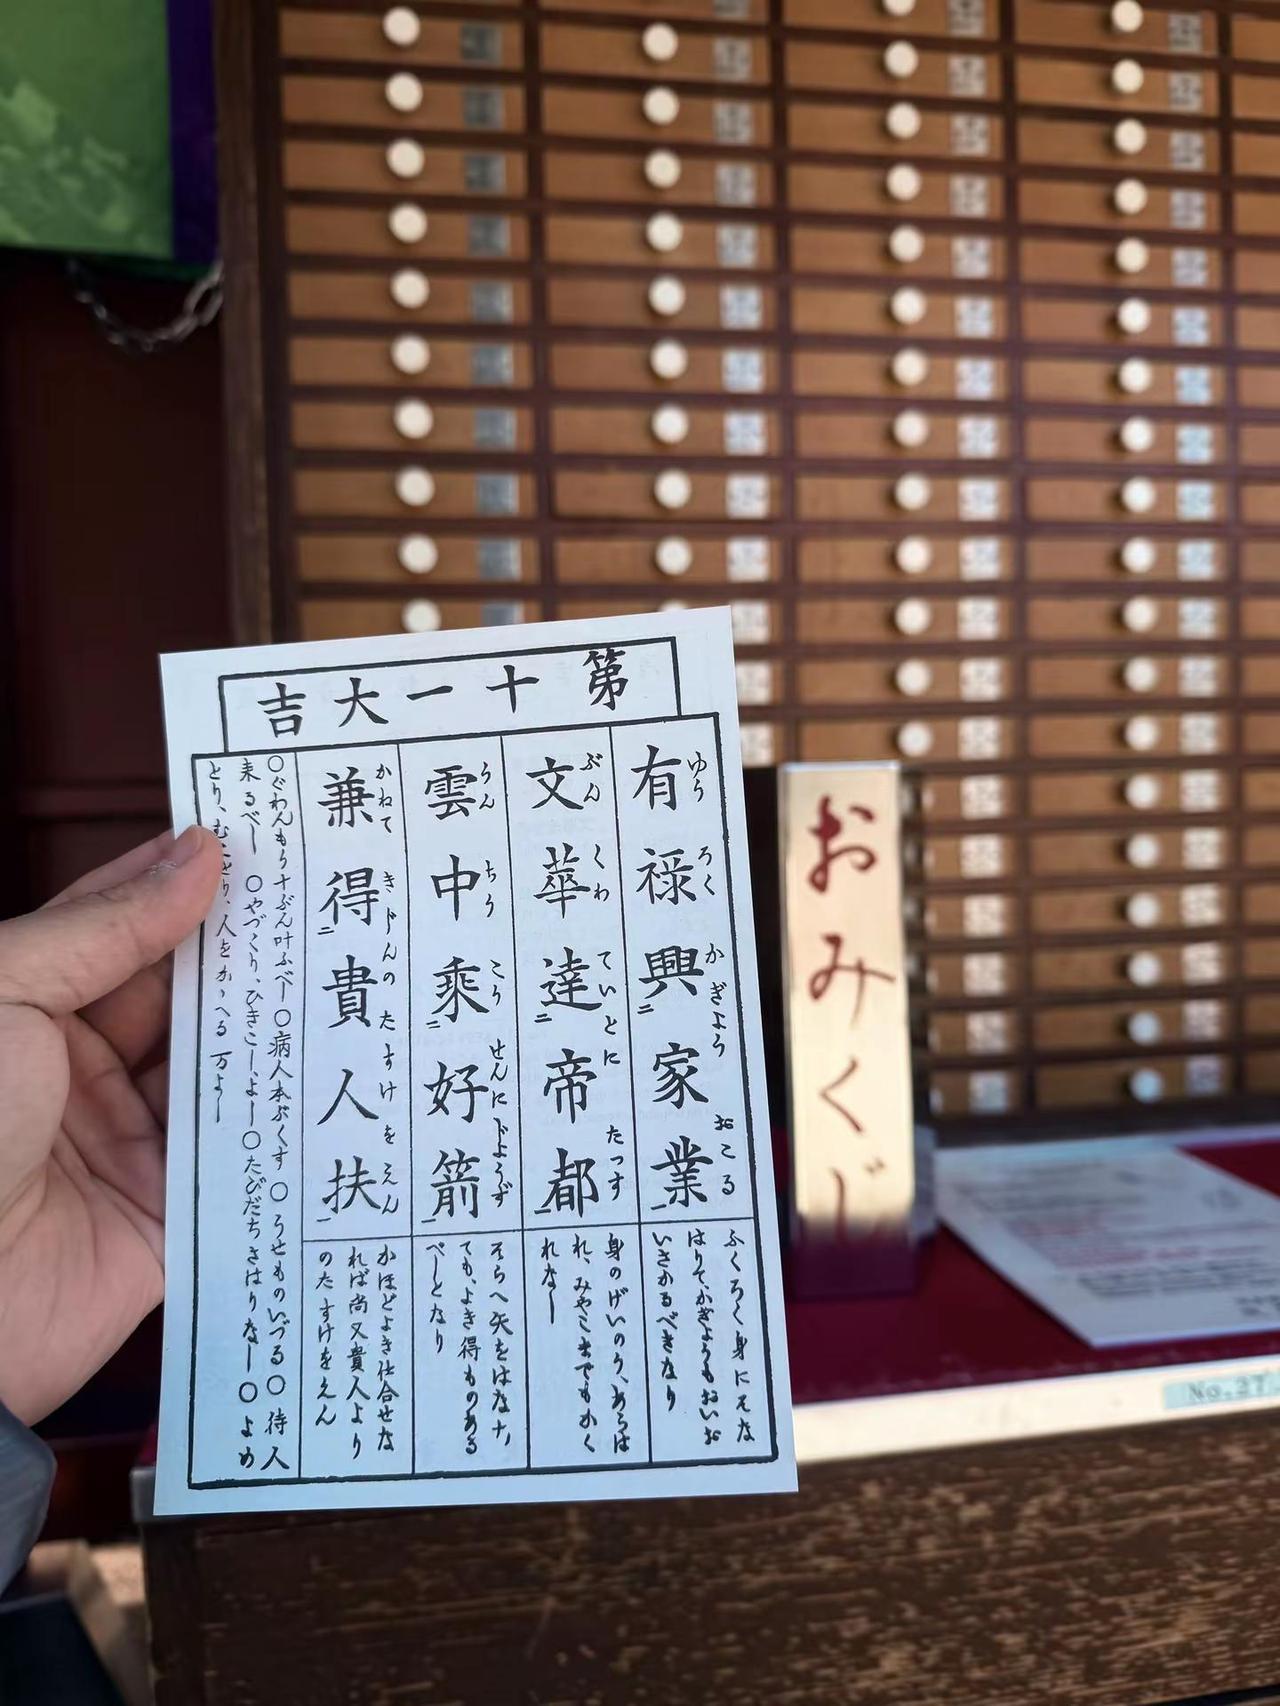 第十一大吉
有禄興二家業一
ゆうろくかぎようおこる
ふくろく身にそな
はりて、かぎようもおいお
いさかるべきなり
文華達二帝都一
ぶんくわていとにたつす
身のげいのう、あらは
れ、みやこまでもかく
れなし
雲中乘二好箭一
うんちうこうせんにじようず
そらへ矢をはなす、
ても、よき得ものある
べしとなり
兼得二貴人扶一
かねてきじんのたすけをえん
かほどよき仕合せな
れば尚又貴人より
のたすけをえん
〇ぐわんもう十ぶん叶ふべし〇病人本ぶくす〇うせものいづる〇待人
来るべし 〇やづくり、ひきこし、よし〇たびだちさはりなし〇よめ
とり、むこどり、人をかゝへる 万よし
おみくじ
No.27